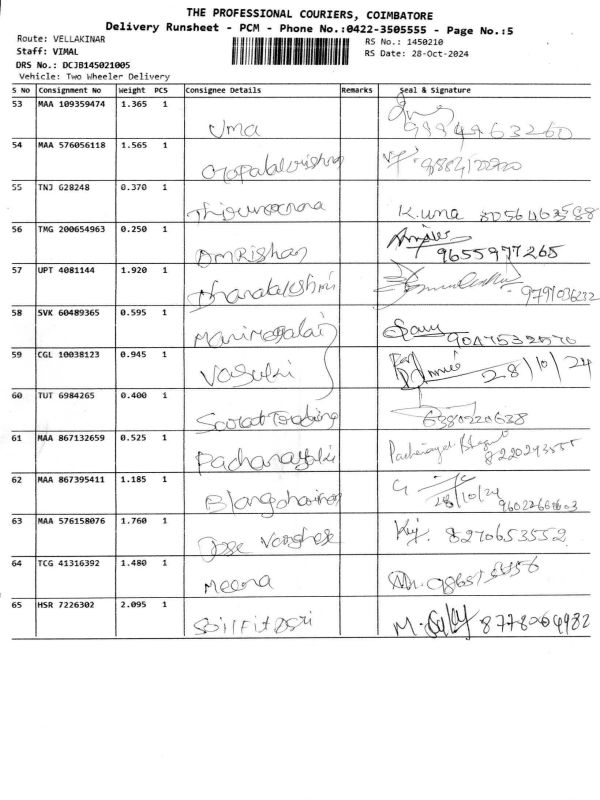 THE PROFESSIONAL COURIERS, COIMBATORE
Delivery Runsheet - PCM - Phone No.:0422-3505555 - Page No.:5
Route: VELLAKINAR
RS No.: 1450210
Staff: VIMAL
RS Date: 28-Oct-2024
DRS No.: DCJB145021005
Vehicle: Two Wheeler Delivery
S No Consignment No Weight PCS Consignee Details Remarks Seal & Signature
53 MAA 109359474 1.365 1 Uma 9884963260
54 MAA 576056118 1.565 1 Gopalakrishnan
55 TNJ 628248 0.370 1 K. Uma
56 TMG 200654963 0.250 1 9655977265
57 UPT 4081144 1.920 1 Dhanalakshmi 9791036232
58 SVK 60489365 0.595 1 Manimegalai 9047532570
59 CGL 10038123 0.945 1 Vasuki 28/10/24
60 TUT 6984265 0.400 1 Trading 6380220638
61 MAA 867132659 0.525 1 Pachanayaki
62 MAA 867395411 1.185 1 28/10/24
63 MAA 576158076 1.760 1 Jose Varghese 8270653552
64 TCG 41316392 1.480 1 Meena
65 HSR 7226302 2.095 1 M. 8778064982